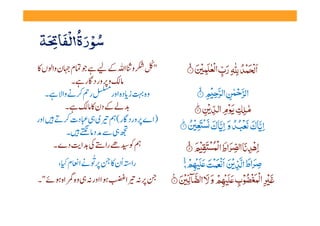 سُوْرَةُ الْفَاتِحَة
اَلْحَمْدُ لِلّٰهِ رَبِّ الْعٰلَمِيْنَ
"کل شکر و ثنا اللہ کے لیے ہے جو تمام جہان والوں کا
مالک و پروردگار ہے۔
الرَّحْمٰنِ الرَّحِيْمِ
وہ بہت زیادہ اور مسلسل رحم کرنے والا ہے۔
مٰلِكِ يَوْمِ الدِّيْنِ
بدلے کے دن کا مالک ہے۔
اِيَّاكَ نَعْبُدُ وَ اِيَّاكَ نَسْتَعِيْنُ
(اے پروردگار) ہم تیری ہی عبادت کرتے ہیں اور
تجھ ہی سے مدد مانگتے ہیں۔
اِهْدِنَا الصِّرَاطَ الْمُسْتَقِيْمَ
ہم کو سیدھے راستے کی ہدایت دے۔
صِرَاطَ الَّذِيْنَ اَنْعَمْتَ عَلَيْهِمْ
راستہ اُن کا جن پر تُو نے انعام کیا،
غَيْرِ الْمَغْضُوْبِ عَلَيْهِمْ وَ لَا الضَّآلِّيْنَ
جن پر نہ تیرا غضب ہوا اور نہ ہی وہ گمراہ ہوئے"۔